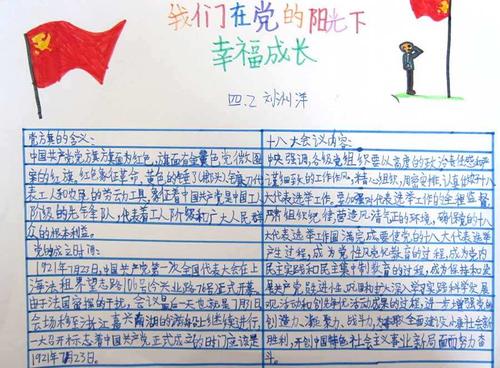 我们在党的阳光下
幸福成长
四.2 刘洲洋
党方旗的含义:
中国共产党党方旗方旗面为红色,旗面有金黄色党徽图
案的红旗。红色象征革命,黄色的锤子(那头)、镰刀代
表工人和农民的劳动工具,象征着中国共产党是中国工人
阶级的先锋队,代表着工人阶级和广大人民群
众的根本利益。
党的成立时间:
1921年7月22日,中国共产党第一次全国代表大会在上
海法租界望志路106号(今兴业路76号)正式开幕。
由于法国密探的干扰,会议最后一天也就是7月31日
会场移至浙江嘉兴南湖的游船上继续进行
一大召开标志着中国共产党正式成立的时间应该是
1921年7月23日。
十八大会议内容:
中央强调,各级党组织要以高度的政治责任感
谨细致的工作作风,精心组织,周密安排,认真做好十八
大代表选举工作。要加强对代表选举工作的全程监督
严肃组织纪律,营造风清气正的环境,确保党的十八
大代表选举工作圆满完成。要使党的十八大代表选举
产生过程,成为党性党风教育的过程,成为党内
民主实践和民主集中制教育的过程,成为保持和发
展共产党员先进性、巩固和扩大深入学习实践科学发
观活动和创先争优活动成果的过程,进一步增强党的
创造力、凝聚力、战斗力,为夺取全面建设小康社会新
胜利,开创中国特色社会主义事业新局面而努力奋
斗。